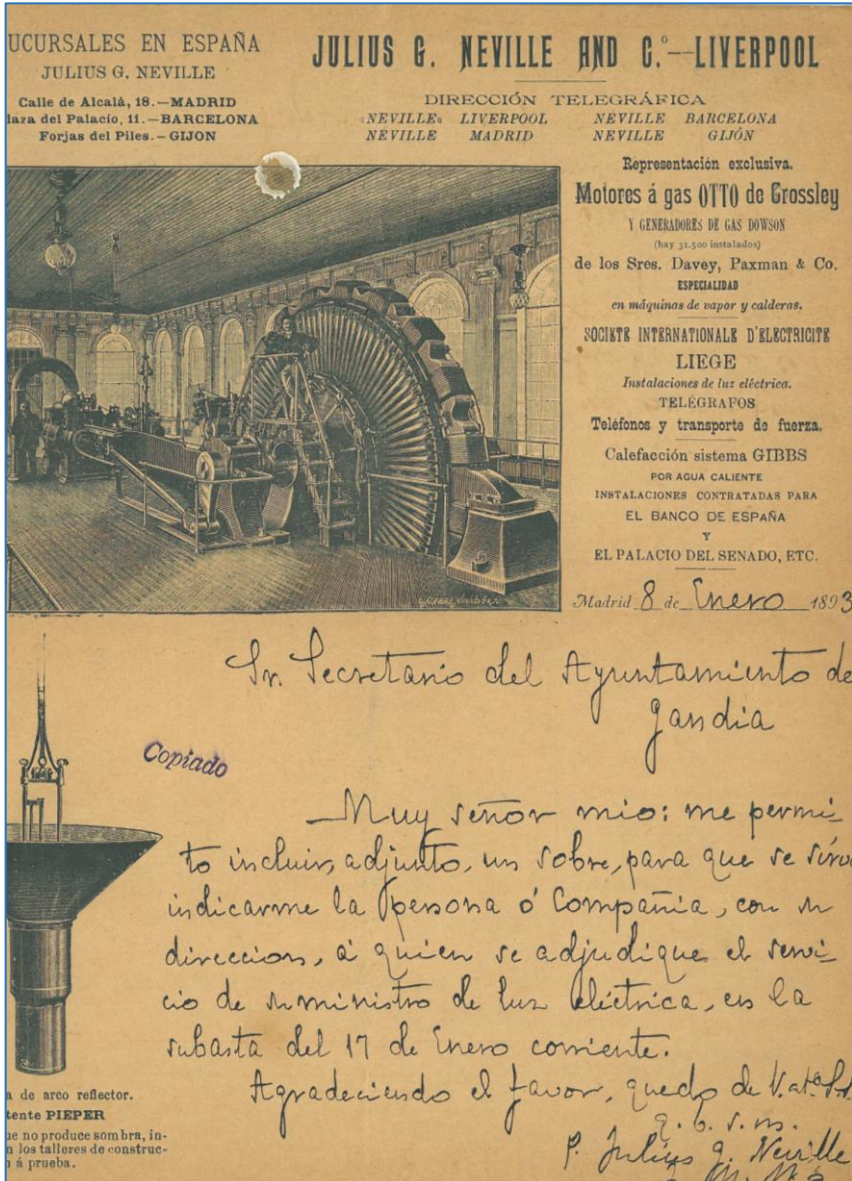 UCURSALES EN ESPAÑA
JULIUS G. NEVILLE
Calle de Alcalá, 18.—MADRID
laza del Palacio, 11.—BARCELONA
Forjas del Piles.—GIJON
JULIUS G. NEVILLE AND C.º—LIVERPOOL
DIRECCIÓN TELEGRÁFICA
«NEVILLE» LIVERPOOL NEVILLE BARCELONA
NEVILLE MADRID NEVILLE GIJÓN
Representación exclusiva.
Motores á gas OTTO de Crossley
Y GENERADORES DE GAS DOWSON
(hay 31.500 instalados)
de los Sres. Davey, Paxman & Co.
ESPECIALIDAD
en máquinas de vapor y calderas.
SOCIETE INTERNATIONALE D'ELECTRICITE
LIEGE
Instalaciones de luz eléctrica.
TELÉGRAFOS
Teléfonos y transporte de fuerza.
Calefacción sistema GIBBS
POR AGUA CALIENTE
INSTALACIONES CONTRATADAS PARA
EL BANCO DE ESPAÑA
Y
EL PALACIO DEL SENADO, ETC.
Madrid 8 de Enero 1893
Sr. Secretario del Ayuntamiento de
Gandia
Copiado
Muy señor mio: me permi-
to incluir, adjunto, un sobre, para que se sirva
indicarme la persona ó Compañia, con su
direccion, á quien se adjudique el servi-
cio de suministro de luz eléctrica, en la
subasta del 17 de Enero corriente.
Agradeciendo el favor, quedo de V. at.º S.S.
q. b. s. m.
P. Julius G. Neville
a de arco reflector.
tente PIEPER
ue no produce sombra, in-
n los talleres de construc-
n á prueba.